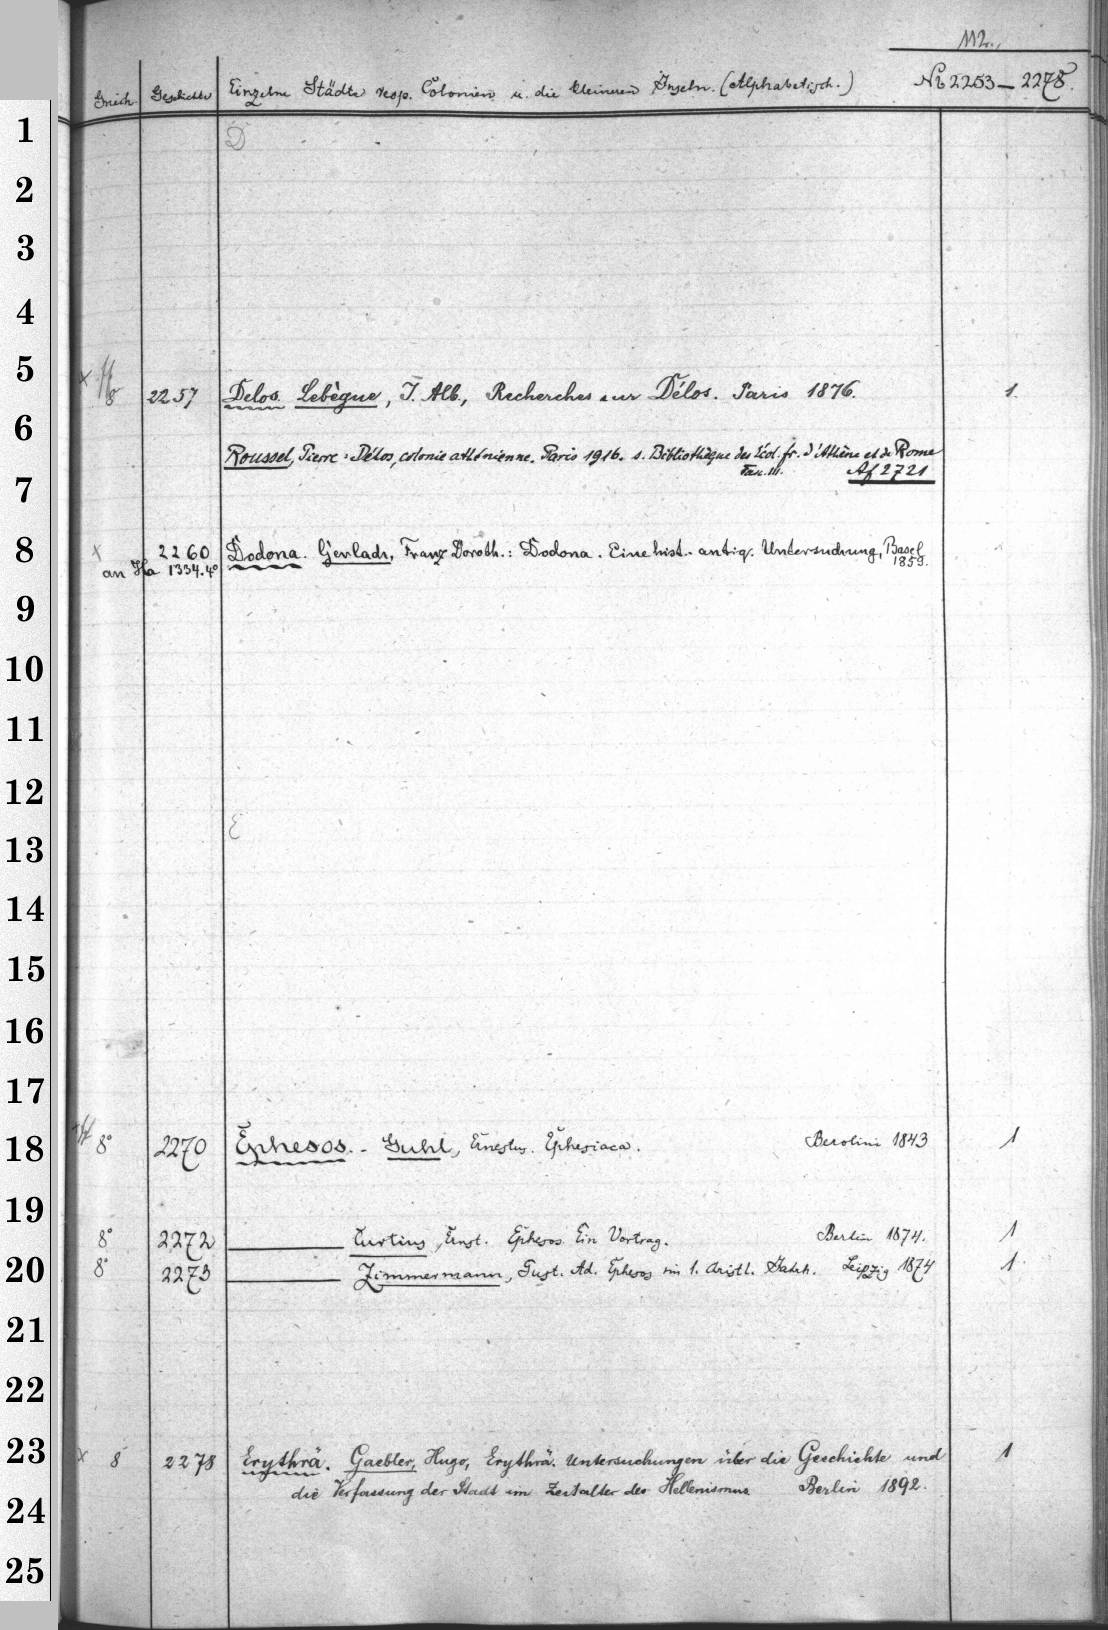 112.
Griech. Geschichte Einzelne Städte resp. Colonien u. die kleineren Inseln. (Alphabetisch.) No 2253–2278.
D
1
2
3
4
5
8 2257 Delos. Lebègue, J. Alb., Recherches sur Délos. Paris 1876. 1.
6
Roussel, Pierre: Délos, colonie athénienne. Paris 1916. s. Bibliothèque des Écol. fr. d'Athène et de Rome
Fasc. 111. Af 2721
7
8
x 2260 Dodona. Gerlach, Franz Doroth.: Dodona. Eine hist.-antiq. Untersuchung, Basel
an Ha 1334.4° 1859.
9
10
11
12
E
13
14
15
16
17
18
8° 2270 Ephesos. - Guhl, Ernestus. Ephesiaca. Berolini 1843 1
19
8° 2272 Curtius, Ernst. Ephesos. Ein Vortrag. Berlin 1874. 1
20
8° 2273 Zimmermann, Gust. Ad. Ephesos im 1. christl. Jahrh. Leipzig 1874 1.
21
22
23
x 8 2278 Erythrä. Gaebler, Hugo, Erythrä. Untersuchungen über die Geschichte und 1
die Verfassung der Stadt im Zeitalter des Hellenismus Berlin 1892.
24
25